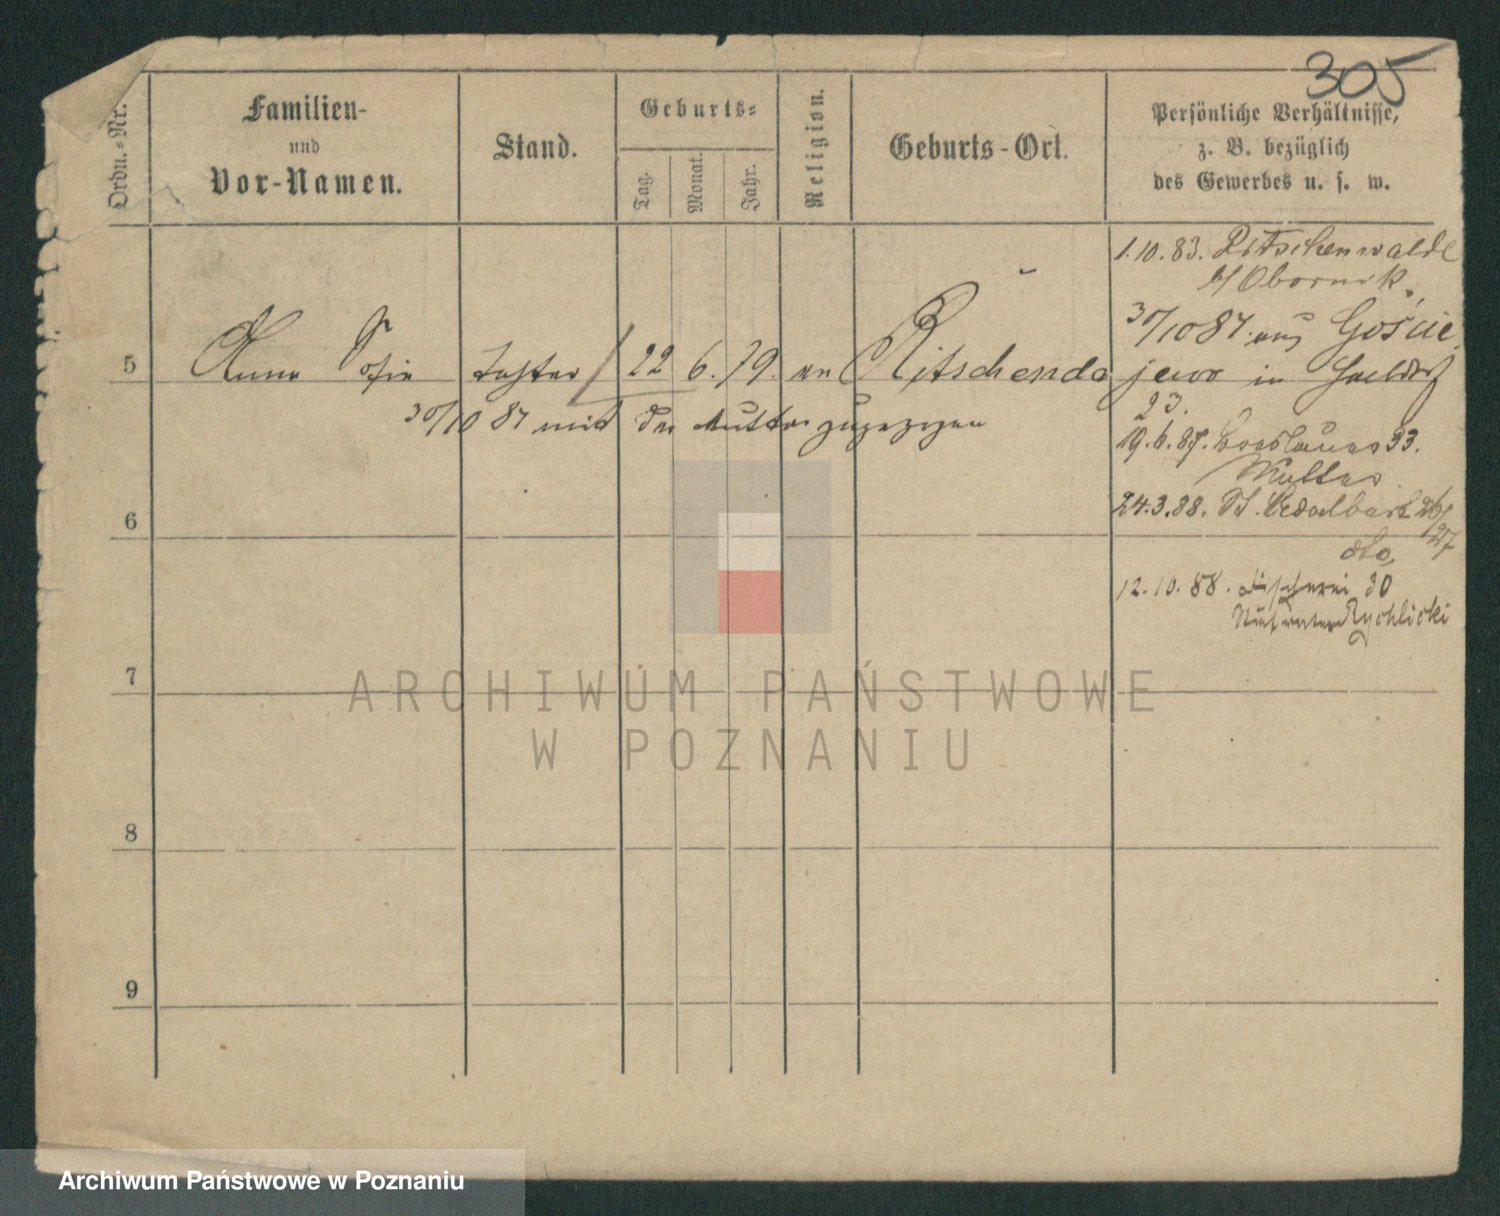 305
Ordn.-Nr.
Familien-
und
Vor-Namen.
Stand.
Geburts-
Tag.
Monat.
Jahr.
Religion.
Geburts-Ort.
Persönliche Verhältnisse,
z. B. bezüglich
des Gewerbes u. s. w.
1.10.83. Ritschenwalde
b/Obornik.
30/10 87 aus Goście
jewo in
23.
5 Anna Sofie Tochter 22 6. 79. Ritschenda
30/10 87 mit der Mutter zugezogen
19.6.87. Breslauer 33.
Mutter
24.3.88. St. Adalbert 26/27
dto.
6
12.10.88. Fischerei 30
Stiefvater Rychlicki
7
8
9
ARCHIWUM PAŃSTWOWE
W POZNANIU
Archiwum Państwowe w Poznaniu